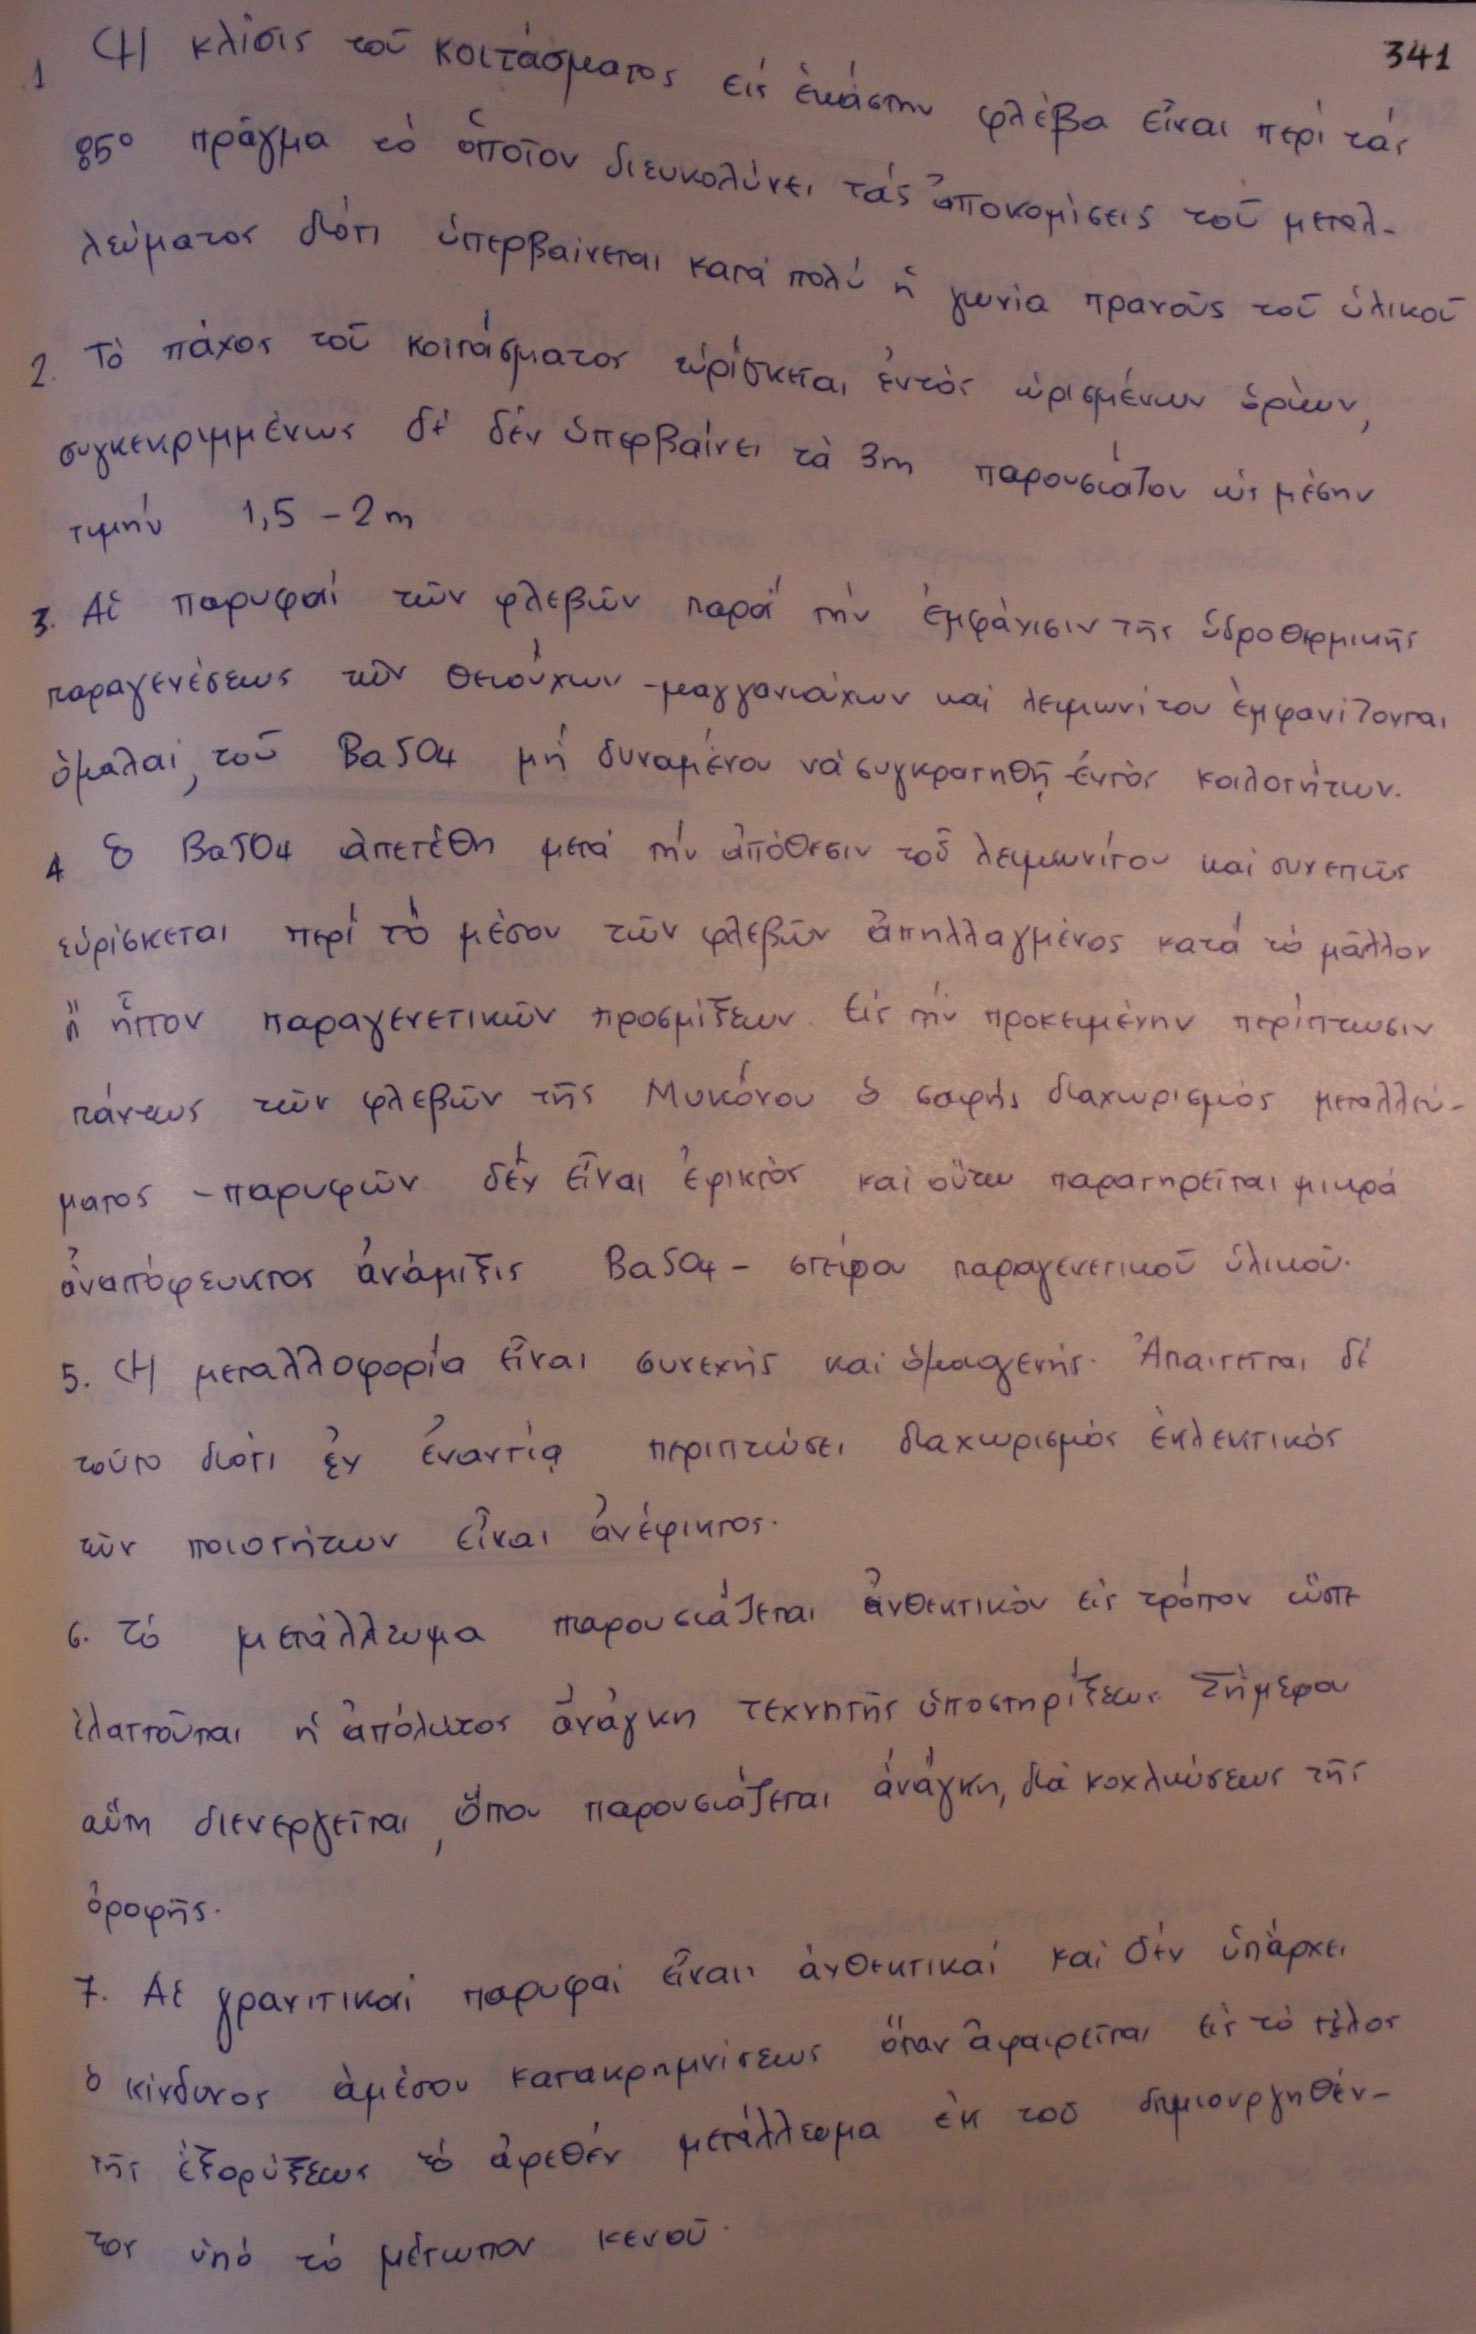 341
1 Ἡ κλίσις τοῦ κοιτάσματος εἰς ἑκάστην φλέβα εἶναι περί τάς
85° πρᾶγμα τό ὁποῖον διευκολύνει τάς ἀποκομίσεις τοῦ μεταλ-
λεύματος διότι ὑπερβαίνεται κατά πολύ ἡ γωνία πρανοῦς τοῦ ὑλικοῦ
2. Τό πάχος τοῦ κοιτάσματος εὑρίσκεται ἐντός ὡρισμένων ὁρίων,
συγκεκριμμένως δέ δέν ὑπερβαίνει τά 3m παρουσιάζον ὡς μέσην
τιμήν 1,5 - 2 m
3. Αἱ παρυφαί τῶν φλεβῶν παρά τήν ἐμφάνισιν τῆς ὑδροθερμικῆς
παραγενέσεως τῶν θειούχων - μαγγανιούχων καί λειμωνίτου ἐμφανίζονται
ὁμαλαί, τοῦ BaSO4 μή δυναμένου νά συγκρατηθῇ ἐντός κοιλοτήτων.
4 ὁ BaSO4 ἀπετέθη μετά τήν ἀπόθεσιν τοῦ λειμωνίτου καί συνεπῶς
εὑρίσκεται περί τό μέσον τῶν φλεβῶν ἀπηλλαγμένος κατά τό μᾶλλον
ἤ ἧττον παραγενετικῶν προσμίξεων. Εἰς τήν προκειμένην περίπτωσιν
πάντως τῶν φλεβῶν τῆς Μυκόνου ὁ σαφής διαχωρισμός μεταλλεύ-
ματος - παρυφῶν δέν εἶναι ἐφικτός καί οὕτω παρατηρεῖται μικρά
ἀναπόφευκτος ἀνάμιξις BaSO4 - στείρου παραγενετικοῦ ὑλικοῦ.
5. Ἡ μεταλλοφορία εἶναι συνεχής καί ὁμοιογενής. Ἀπαιτεῖται δέ
τοῦτο διότι ἐν ἐναντίᾳ περιπτώσει διαχωρισμός ἐκλεκτικός
τῶν ποιοτήτων εἶναι ἀνέφικτος.
6. Τό μετάλλευμα παρουσιάζεται ἀνθεκτικόν εἰς τρόπον ὥστε
ἐλαττοῦται ἡ ἀπόλυτος ἀνάγκη τεχνητῆς ὑποστηρίξεως. Σήμερον
αὕτη διενεργεῖται, ὅπου παρουσιάζεται ἀνάγκη, διά κοχλιώσεως τῆς
ὀροφῆς.
7. Αἱ γρανιτικαί παρυφαί εἶναι ἀνθεκτικαί καί δέν ὑπάρχει
ὁ κίνδυνος ἀμέσου κατακρημνίσεως ὅταν ἀφαιρεῖται εἰς τό τέλος
τῆς ἐξορύξεως τό ἀφεθέν μετάλλευμα ἐκ τοῦ δημιουργηθέν-
τος ὑπό τό μέτωπον κενοῦ.